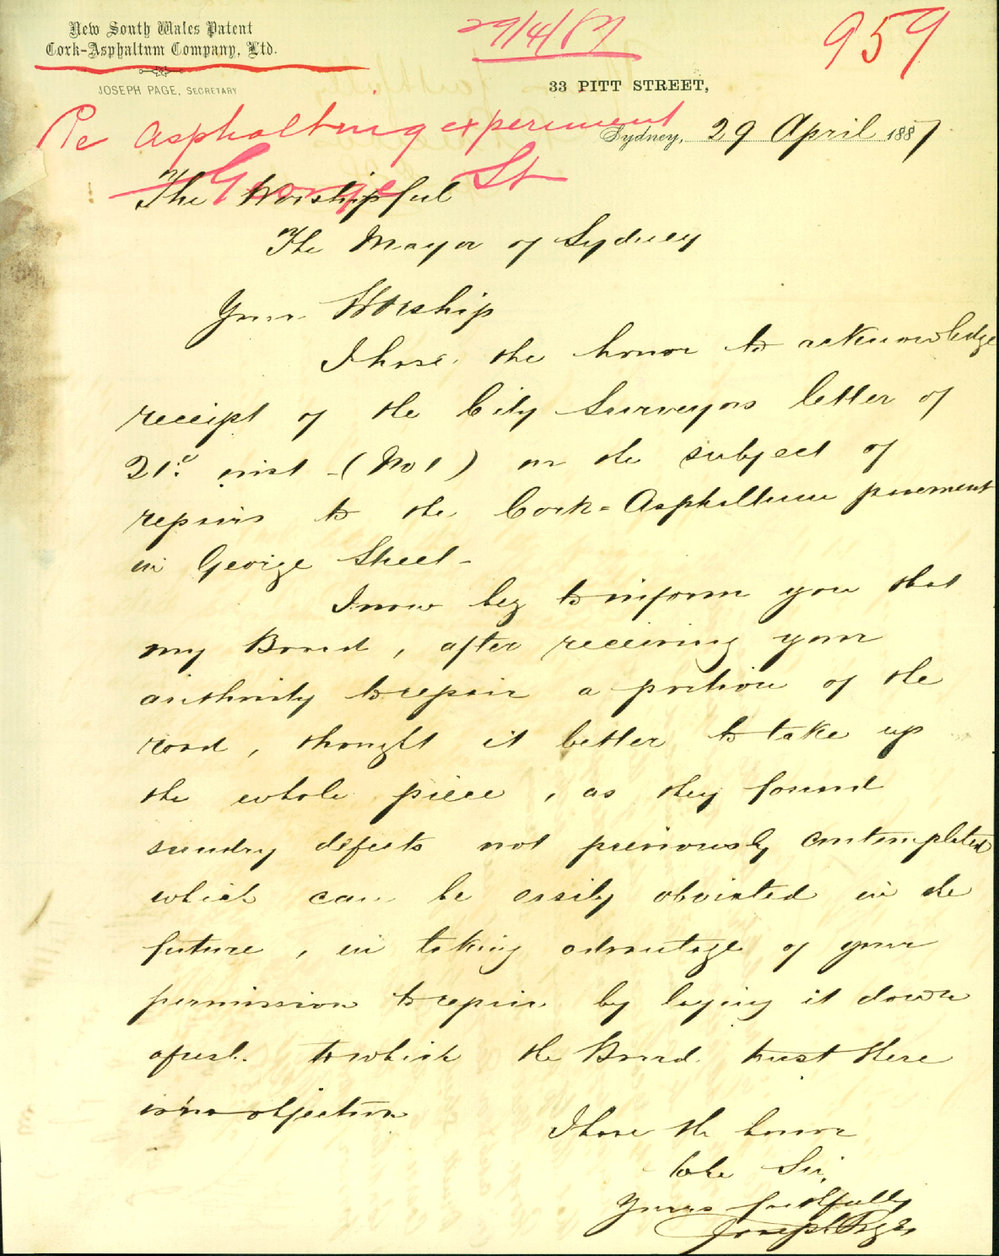 New South Wales Patent
Cork-Asphaltum Company, Ltd.
JOSEPH PAGE, SECRETARY
29/4/87
959
33 PITT STREET,
Re Asphaltum experiment
George St
Sydney, 29 April 1887
The Worshipful
The Mayor of Sydney
Your Worship
I have the honor to acknowledge
receipt of the City Surveyors letter of
21st inst - (No 1) on the subject of
repairs to the Cork=Asphaltum pavement
in George Street -
I now beg to inform you that
my Board, after receiving your
authority to repair a portion of the
road, thought it better to take up
the whole piece, as they found
sundry defects not previously contemplated
which can be easily obviated in the
future, in taking advantage of your
permission to repair by laying it down
afresh to which the Board trust there
is no objection
I have the honor
to be Sir,
Yours faithfully
Joseph Page